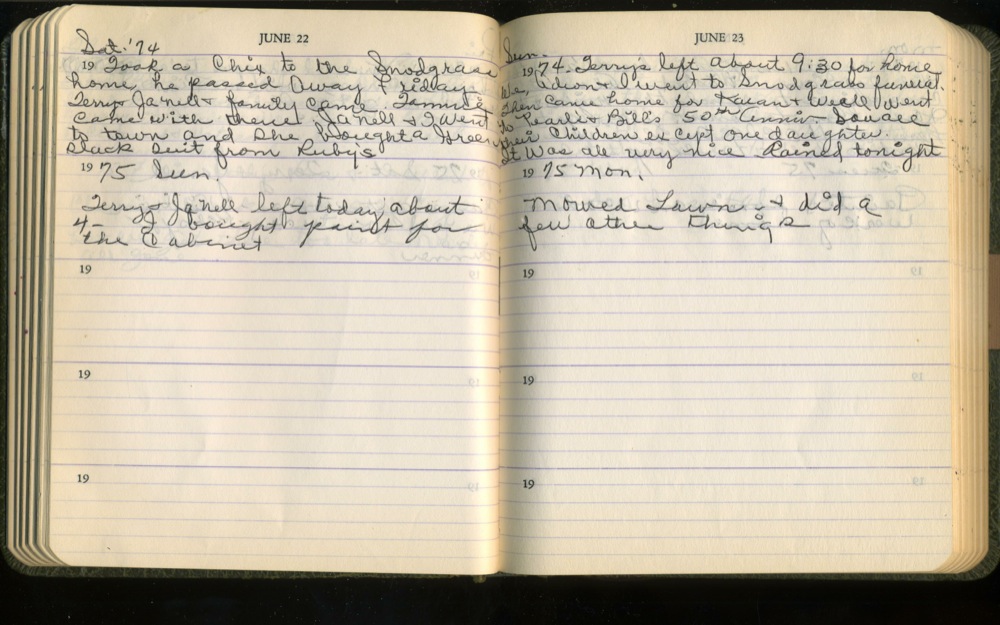 JUNE 22
Sat. '74
19 Took a Chix to the Snodgrass
home, he passed away Friday.
Terry Janell & family came. Tammie
came with them. Janell & I went
to town and she bought a Green
slack suit from Ruby's
19 75 Sun.
Terry & Janell left today about
4- I bought paint for
the Cabinet
19
19
19
JUNE 23
Sun.
19 74. Terry's left about 9:30 for home,
We, & I went to Snodgrass funeral.
Then came home for & we all went
to Pearl & Bill's 50th Anniv- Saw all
their Children except one daughter.
It was all very nice. Rained tonight
19 75 Mon.
Mowed Lawn & did a
few other things
19
19
19